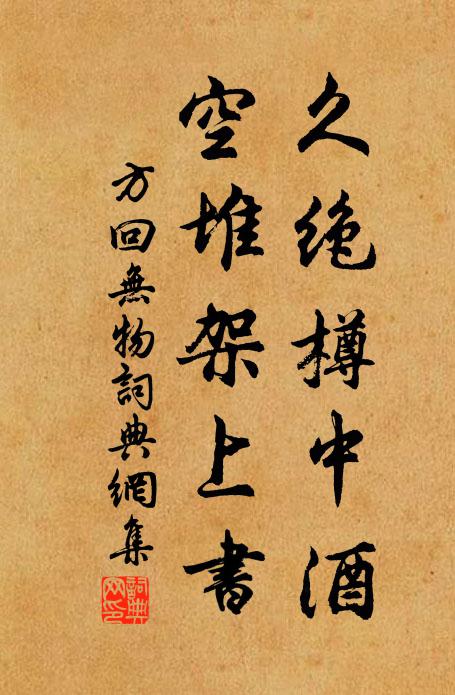 久绝樽中酒
空堆架上書
方回無物詞典網集
詞典网印